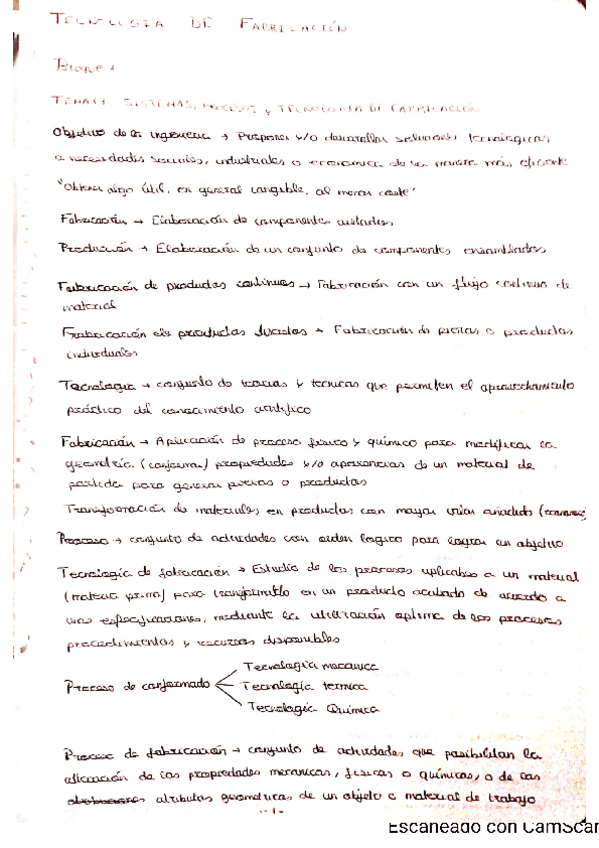 TECNOLOGIA DE FABRICACIÓN
Bloque 1
TEMA 1: SISTEMAS, PROCESOS y TECNOLOGIA DE FABRICACIÓN
Objetivo de la ingeniería → Proponer y/o desarrollar soluciones tecnológicas
a necesidades sociales, industriales o económica de la manera más eficiente
"Obtener algo útil, en general tangible, al menor coste"
Fabricación → Elaboración de componentes aislados
Producción → Elaboración de un conjunto de componentes ensamblados
Fabricación de productos continuos → Fabricación con un flujo continuo de
material
Fabricación de productos discretos → Fabricación de piezas o productos
individuales
Tecnología → conjunto de teorías y técnicas que permiten el aprovechamiento
práctico del conocimiento científico
Fabricación → Aplicación de proceso físico y químico para modificar la
geometría (conformar) propiedades y/o apariencias de un material de
partida para generar piezas o productos
Transformación de materiales en productos con mayor valor añadido
Proceso → conjunto de actividades con orden lógico para lograr un objetivo
Tecnología de fabricación → Estudio de los procesos aplicables a un material
(materia prima) para transformarlo en un producto acabado de acuerdo a
unas especificaciones, mediante la utilización optima de los procesos
procedimientos y recursos disponibles
Proceso de conformado
Tecnología mecanica
Tecnología termica
Tecnología Química
Proceso de fabricación → conjunto de actividades que posibilitan la
alteración de las propiedades mecanicas, fisicas o químicas, o de los
atributos geometricos de un objeto o material de trabajo
-1-
Escaneado con CamScan